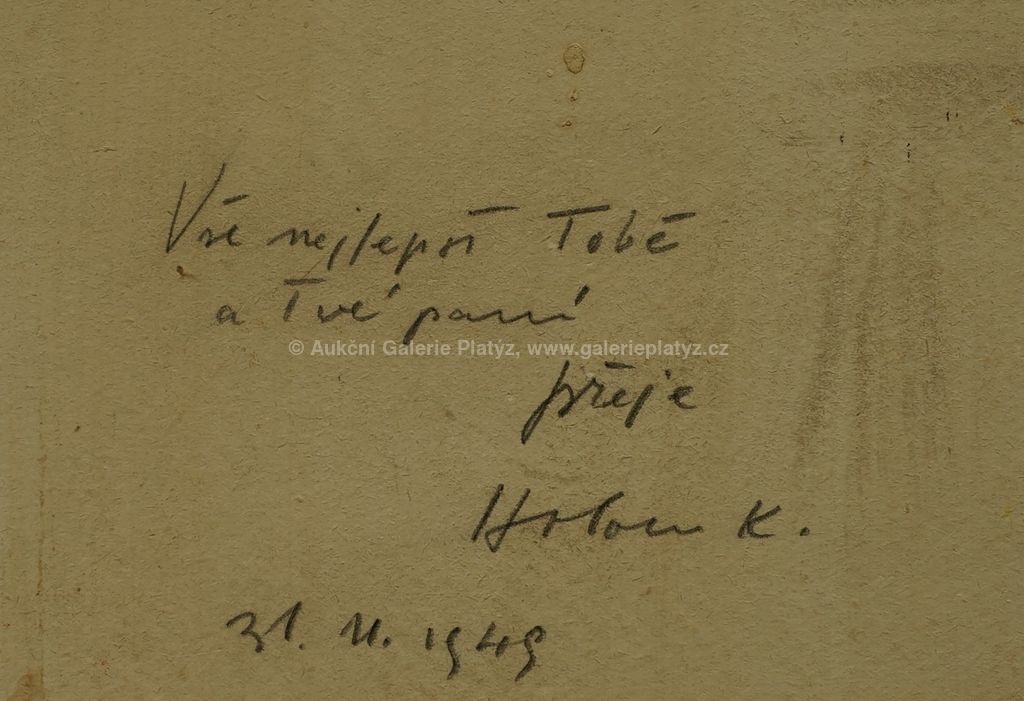 Vše nejlepší Tobě
a Tvé paní
© Aukční Galerie Platýz, www.galerieplatyz.cz
přeje
Holan K.
31. 11. 1949